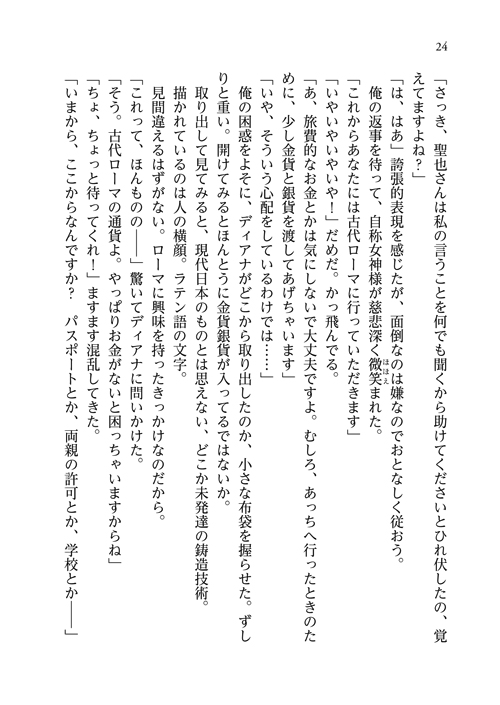 24
「さっき、聖也さんは私の言うことを何でも聞くから助けてくださいとひれ伏したの、覚
えてますよね？」
「は、はあ」誇張的表現を感じたが、面倒なのは嫌なのでおとなしく従おう。
　俺の返事を待って、自称女神様が慈悲深く微笑まれた。
ほほえ
「これからあなたには古代ローマに行っていただきます」
「いやいやいやいや！」だめだ。かっ飛んでる。
「あ、旅費的なお金とかは気にしないで大丈夫ですよ。むしろ、あっちへ行ったときのた
めに、少し金貨と銀貨を渡してあげちゃいます」
「いや、そういう心配をしているわけでは……」
　俺の困惑をよそに、ディアナがどこから取り出したのか、小さな布袋を握らせた。ずし
りと重い。開けてみるとほんとうに金貨銀貨が入ってるではないか。
　取り出して見てみると、現代日本のものとは思えない、どこか未発達の鋳造技術。
　描かれているのは人の横顔。ラテン語の文字。
　見間違えるはずがない。ローマに興味を持ったきっかけなのだから。
「これって、ほんものの――」驚いてディアナに問いかけた。
「そう。古代ローマの通貨よ。やっぱりお金がないと困っちゃいますからね」
「ちょ、ちょっと待ってくれ！」ますます混乱してきた。
「いまから、ここからなんですか？　パスポートとか、両親の許可とか、学校とか――」